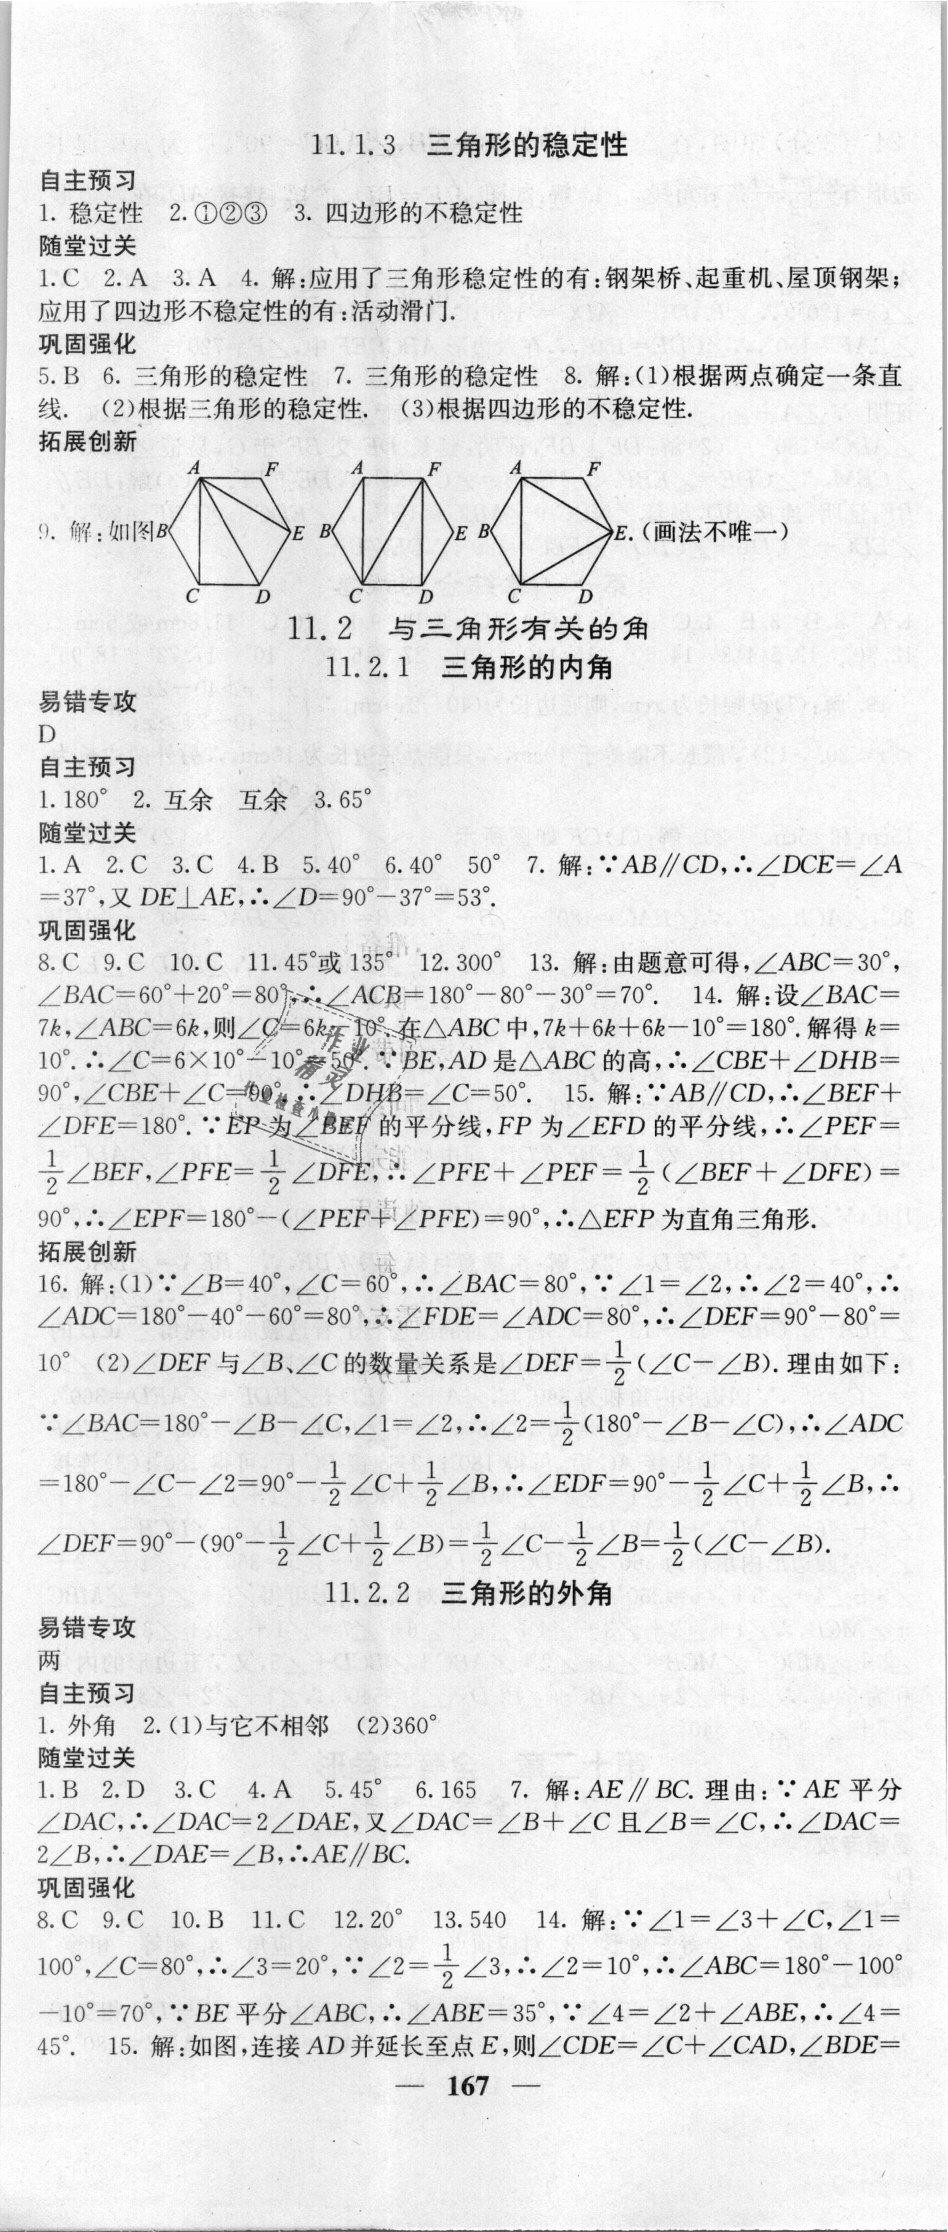 11.1.3 三角形的稳定性
自主预习
1. 稳定性 2.①②③ 3. 四边形的不稳定性
随堂过关
1.C 2.A 3.A 4. 解:应用了三角形稳定性的有:钢架桥、起重机、屋顶钢架;
应用了四边形不稳定性的有:活动滑门.
巩固强化
5.B 6. 三角形的稳定性 7. 三角形的稳定性 8. 解:(1)根据两点确定一条直
线. (2)根据三角形的稳定性. (3)根据四边形的不稳定性.
拓展创新
A F A F A F
9. 解:如图B E B E B E.(画法不唯一)
C D C D C D
11.2 与三角形有关的角
11.2.1 三角形的内角
易错专攻
D
自主预习
1.180° 2. 互余 互余 3.65°
随堂过关
1.A 2.C 3.C 4.B 5.40° 6.40° 50° 7. 解:∵AB∥CD,∴∠DCE=∠A
=37°,又 DE⊥AE,∴∠D=90°-37°=53°.
巩固强化
8.C 9.C 10.C 11.45°或 135° 12.300° 13. 解:由题意可得,∠ABC=30°,
∠BAC=60°+20°=80°,∴∠ACB=180°-80°-30°=70°. 14. 解:设∠BAC=
7k,∠ABC=6k,则∠C=6k-10°,在△ABC 中,7k+6k+6k-10°=180°.解得 k=
10°.∴∠C=6×10°-10°=50°.∵BE,AD 是△ABC 的高,∴∠CBE+∠DHB=
90°,∠CBE+∠C=90°,∴∠DHB=∠C=50°. 15. 解:∵AB∥CD,∴∠BEF+
∠DFE=180°.∵EP 为∠BEF 的平分线,FP 为∠EFD 的平分线,∴∠PEF=
1/2∠BEF,∠PFE=1/2∠DFE,∴∠PFE+∠PEF=1/2(∠BEF+∠DFE)=
90°,∴∠EPF=180°-(∠PEF+∠PFE)=90°,∴△EFP 为直角三角形.
拓展创新
16. 解:(1)∵∠B=40°,∠C=60°,∴∠BAC=80°,∵∠1=∠2,∴∠2=40°,∴
∠ADC=180°-40°-60°=80°,∴∠FDE=∠ADC=80°,∴∠DEF=90°-80°=
10° (2)∠DEF 与∠B、∠C 的数量关系是∠DEF=1/2(∠C-∠B).理由如下:
∵∠BAC=180°-∠B-∠C,∠1=∠2,∴∠2=1/2(180°-∠B-∠C),∴∠ADC
=180°-∠C-∠2=90°-1/2∠C+1/2∠B,∴∠EDF=90°-1/2∠C+1/2∠B,∴
∠DEF=90°-(90°-1/2∠C+1/2∠B)=1/2∠C-1/2∠B=1/2(∠C-∠B).
11.2.2 三角形的外角
易错专攻
两
自主预习
1. 外角 2.(1)与它不相邻 (2)360°
随堂过关
1.B 2.D 3.C 4.A 5.45° 6.165 7. 解:AE∥BC.理由:∵AE 平分
∠DAC,∴∠DAC=2∠DAE,又∠DAC=∠B+∠C 且∠B=∠C,∴∠DAC=
2∠B,∴∠DAE=∠B,∴AE∥BC.
巩固强化
8.C 9.C 10.B 11.C 12.20° 13.540 14. 解:∵∠1=∠3+∠C,∠1=
100°,∠C=80°,∴∠3=20°,∵∠2=1/2∠3,∴∠2=10°,∴∠ABC=180°-100°
-10°=70°,∵BE 平分∠ABC,∴∠ABE=35°,∵∠4=∠2+∠ABE,∴∠4=
45°. 15. 解:如图,连接 AD 并延长至点 E,则∠CDE=∠C+∠CAD,∠BDE=
— 167 —